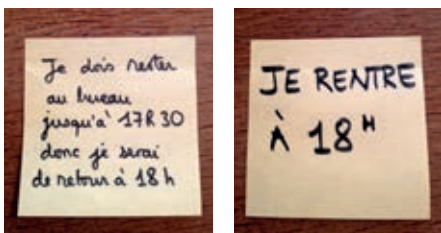 Je dois rester
au bureau
jusqu'à 17h30
donc je serai
de retour à 18h
JE RENTRE
À 18H